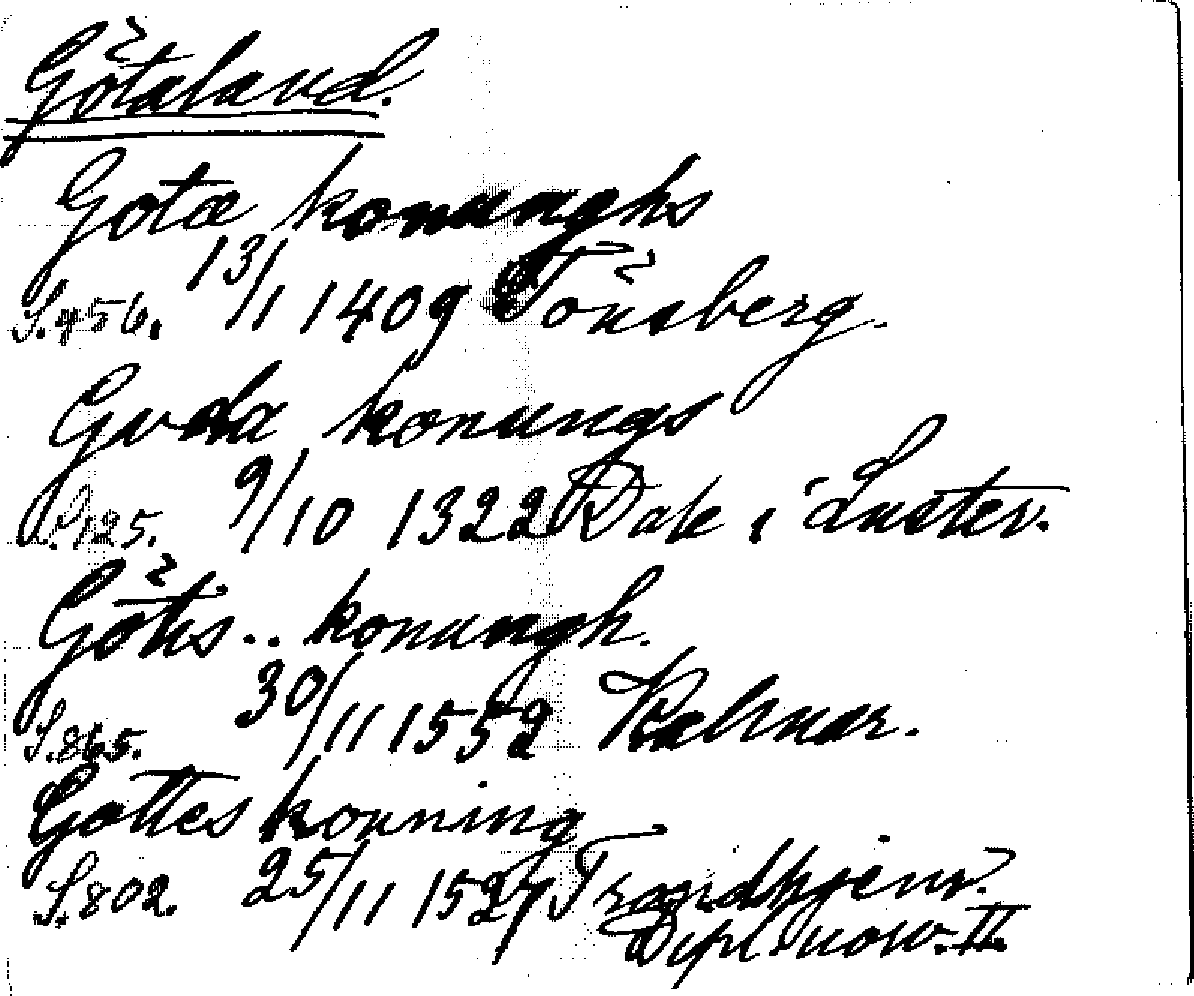 Götaland.
Gotæ konunghs
S. 456. 13/1 1409 Tönsberg.
Guda konungs
S. 125. 9/10 1322 Dale i Luster.
Götis .. konungh.
S. 865. 30/11 1552 Kalmar.
Gottes konning
S. 802. 25/11 1527 Trondhjem.
Dipl. norv. II.